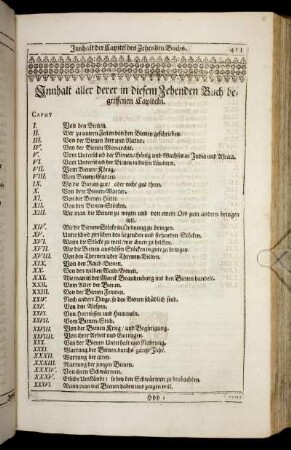 Innhalt der Capitel des Zehenden Buchs.
Innhalt aller derer in diesem Zehenden Buch be-
griffenen Capiteln.
Caput
I. Von den Bienen.
II. Wer zu unsern Zeiten von den Bienen geschrieben.
III. Von der Bienen Art und Natur.
IV. Von der Bienen Monarchie.
V. Vom Unterschied der Bienen/Hönig und Wachs in India und Africa.
VI. Vom Unterschied der Bienen in diesen Ländern.
VII. Vom Bienen-König.
VIII. Vom Bienen-Garten.
IX. Wo die Bienen gut/ oder nicht gut thun.
X. Von dem Bienen-Warter.
XI. Von der Bienen Hütte.
XII. Von den Bienen-Stöcken.
XIII. Wie man die Bienen zu wegen und von einem Ort zum andern bringen soll.
XIV. Wie die Bienen-Stöcke in Ordnung zu bringen.
XV. Unterschied zwischen den liegenden und stehenden Stöcken.
XVI. Wann die Stöcke zu weit/ wie ihnen zu helffen.
XVII. Wie die Bienen aus bösen Stöcken in gute zu bringen.
XVIII. Von den Thronen oder Thränen-Bienen.
XIX. Von den Raub-Bienen.
XX. Von den wilden Raub-Bienen.
XXI. Wie man in der Marck Brandenburg mit den Bienen handelt.
XXII. Vom Alter der Bienen.
XXIII. Von der Bienen Feinden.
XXIV. Noch andere Dinge, so den Bienen schädlich sind.
XXV. Von den Wespen.
XXVI. Von Hornüssen und Hummeln.
XXVII. Vom Bienen-Stich.
XXVIII. Von der Bienen Krieg/ und Begütigung.
XXIX. Von ihrer Arbeit und Eintragen.
XXX. Von der Bienen Unterhalt und Nahrung.
XXXI. Wartung der Bienen durchs gantze Jahr.
XXXII. Wartung der alten.
XXXIII. Wartung der jungen Bienen.
XXXIV. Von ihrem Schwärmen.
XXXV. Etliche Umstände/ so bey den Schwärmen zu beobachten.
XXXVI. Wann man viel Bienen haben und zeugen will.